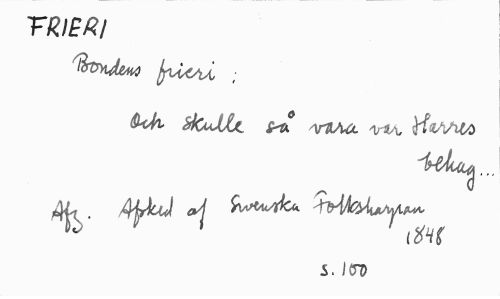 FRIERI
Bondens frieri :
Och skulle så vara vår Herres
behag...
Afz. Afsked af Swenska Folksharpan
1848
s. 100